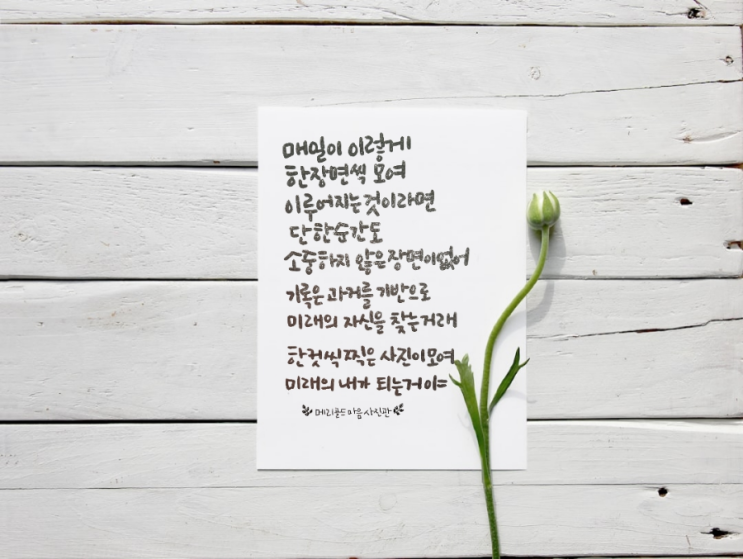 매일이 이렇게
한장면씩 모여
이루어지는것이라면
단한순간도
소중하지 않은장면이없어
기록은 과거를 기반으로
미래의 자신을 찾는거래
한컷씩찍은 사진이모여
미래의 내가 되는거야=
메리골드마음사진관